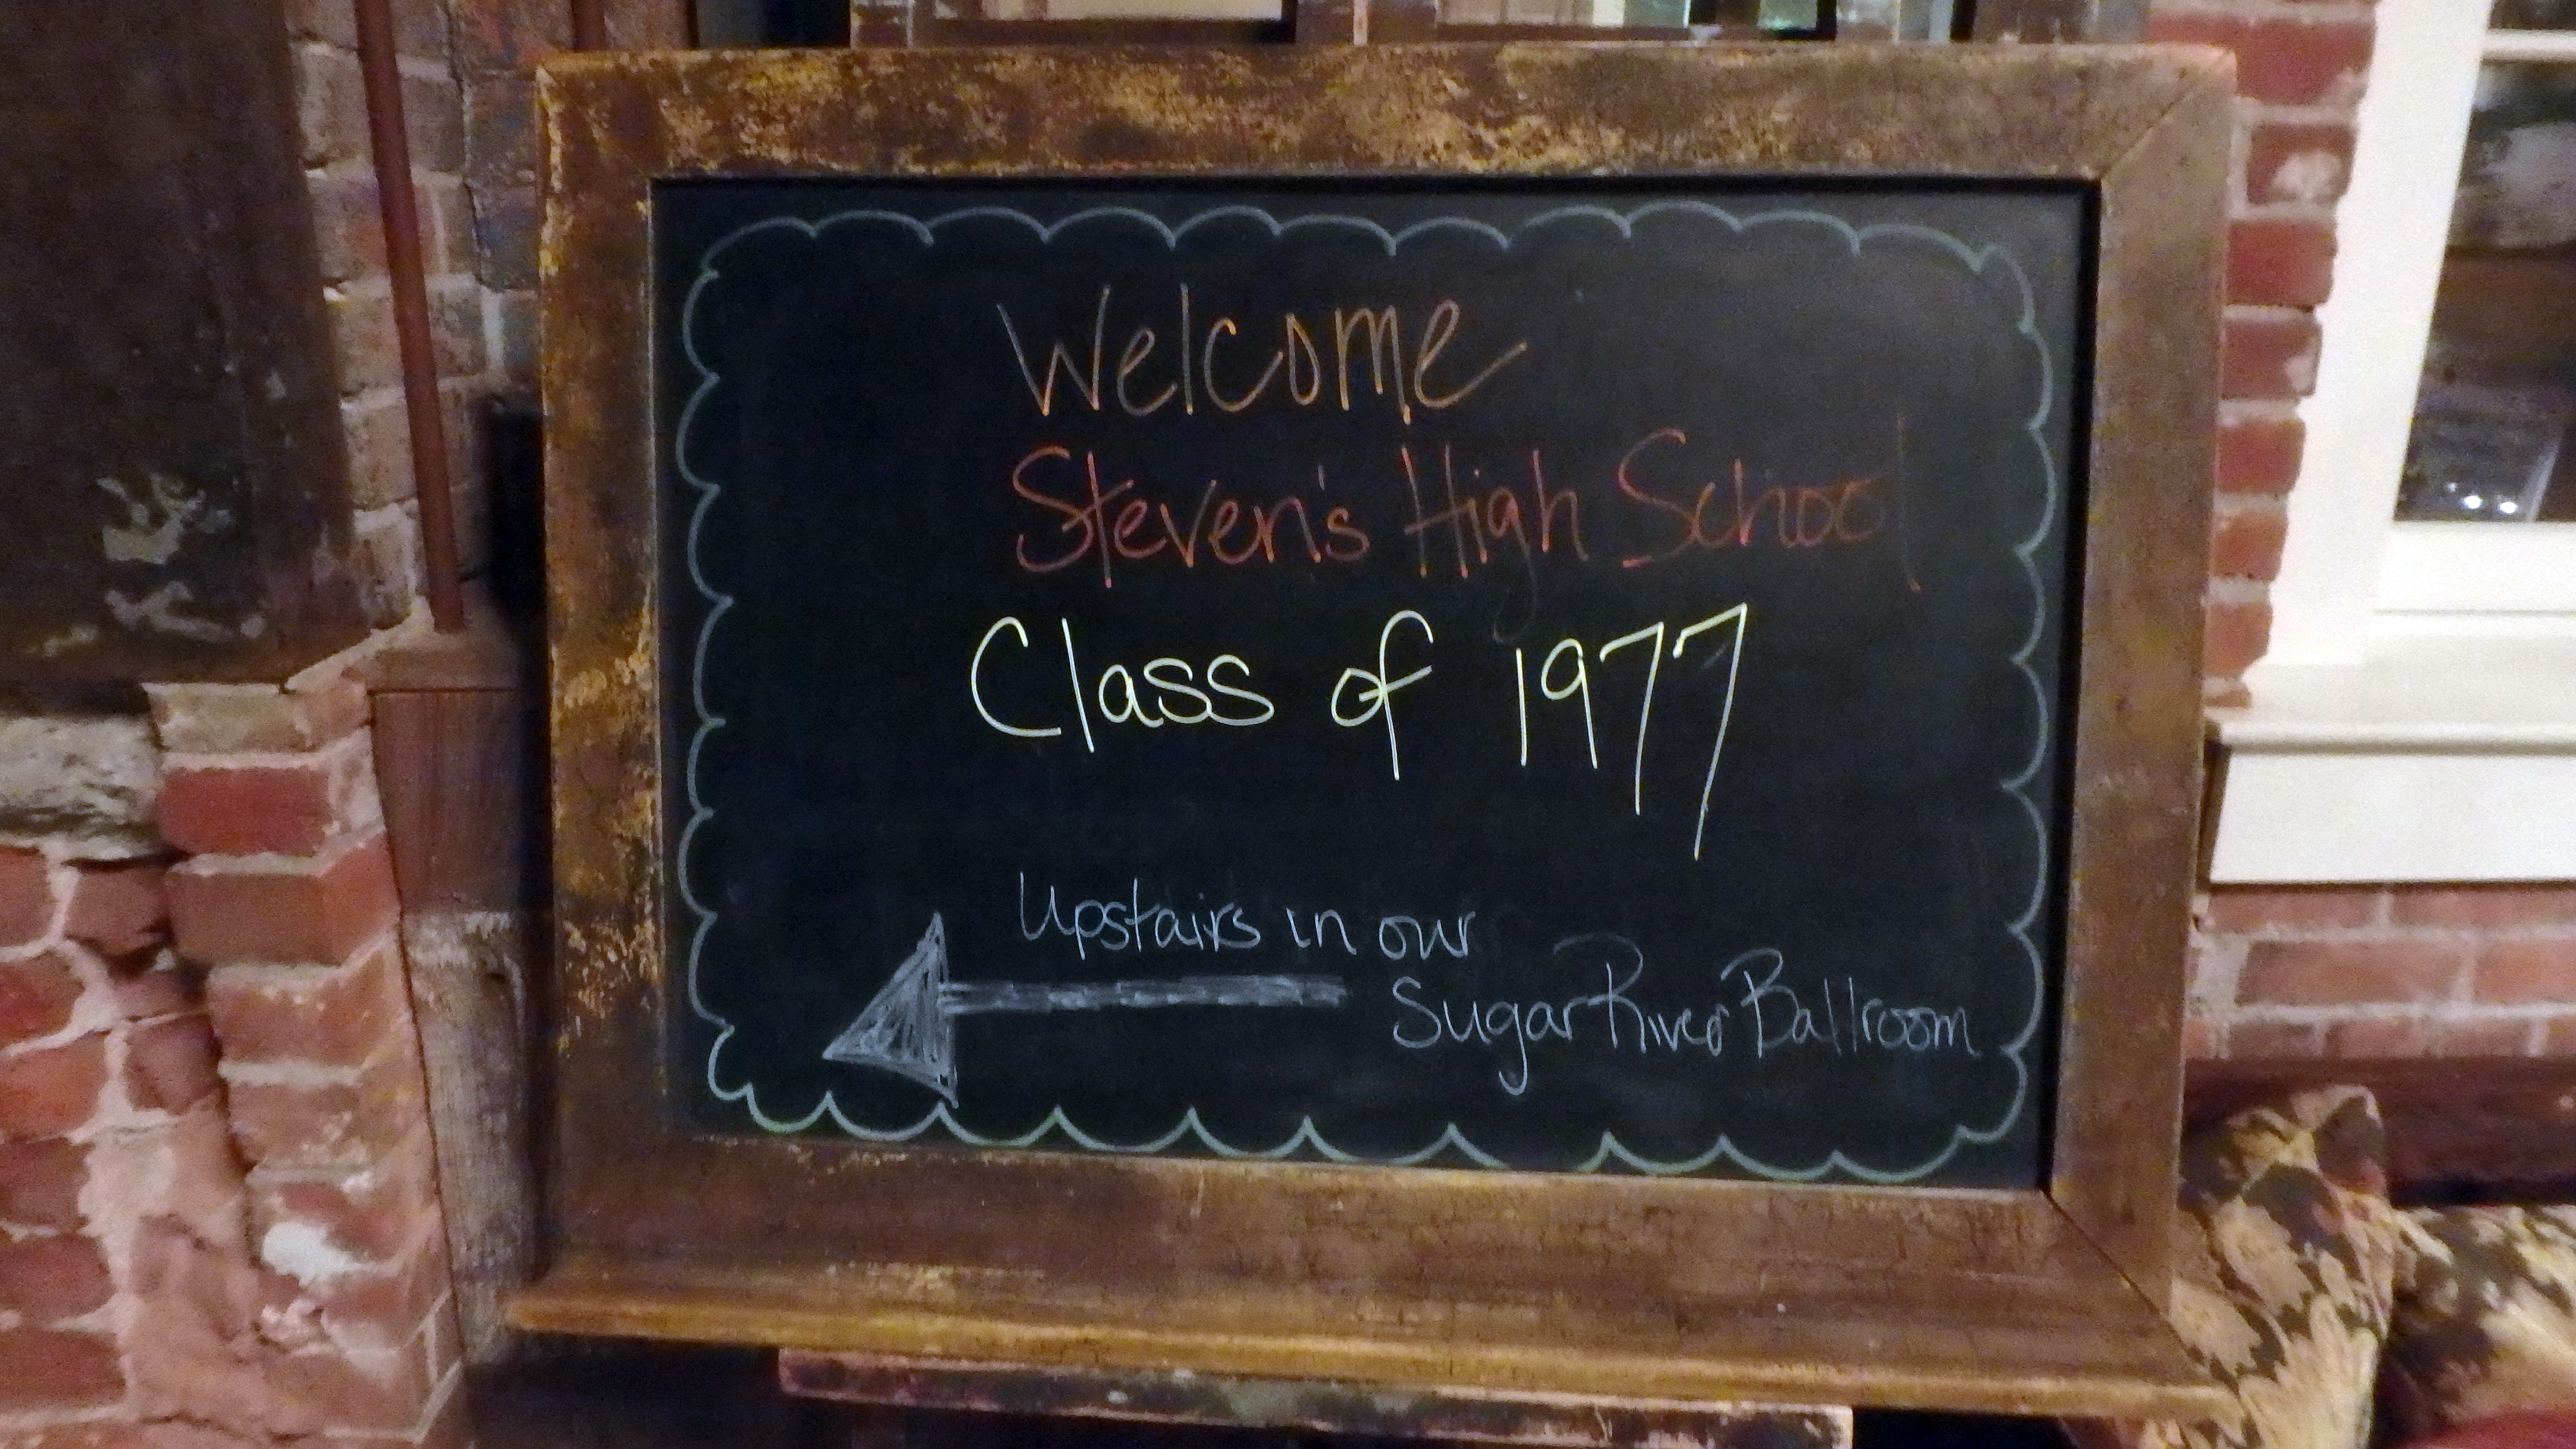 Welcome
Steven's High School
Class of 1977
Upstairs in our
Sugar River Ballroom